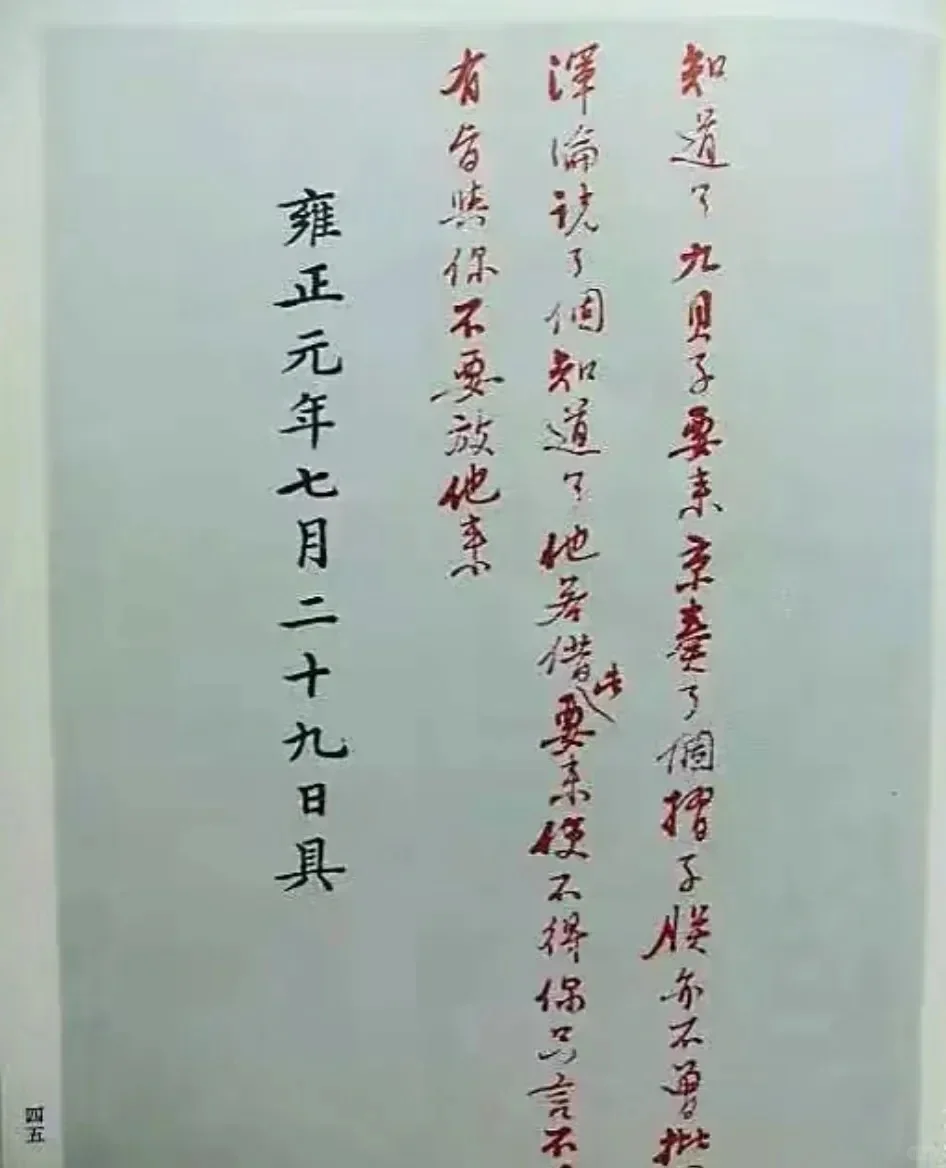 知道了九貝子要來京奏了個摺子朕亦不曾批
渾淪說了個知道了他若借此要來使不得你只言不
有旨與你不要放他來
雍正元年七月二十九日具
四五